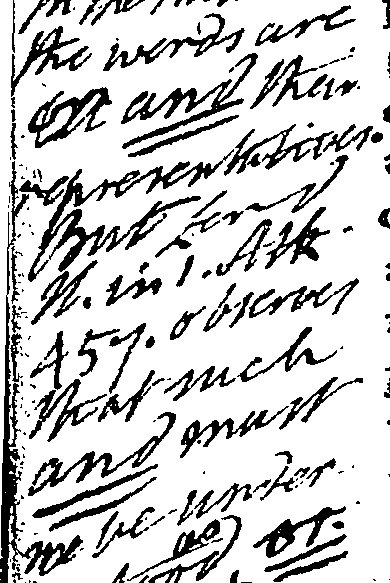 the words are
Ext and their
representatives.
But Lend
H. in 1. Atk.
457. observes
that such
and must
be under
as or.